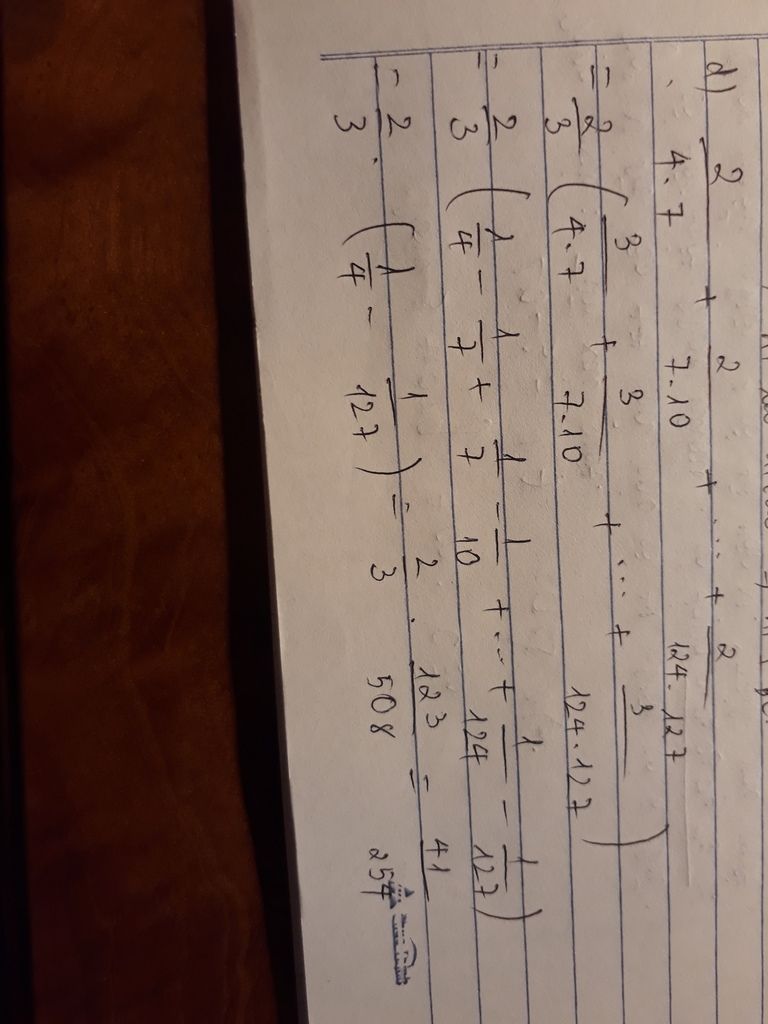 d) 2/4.7 + 2/7.10 + ... + 2/124.127
= 2/3 (3/4.7 + 3/7.10 + ... + 3/124.127)
= 2/3 (1/4 - 1/7 + 1/7 - 1/10 + ... + 1/124 - 1/127)
= 2/3 . (1/4 - 1/127) = 2/3 . 123/508 = 41/254